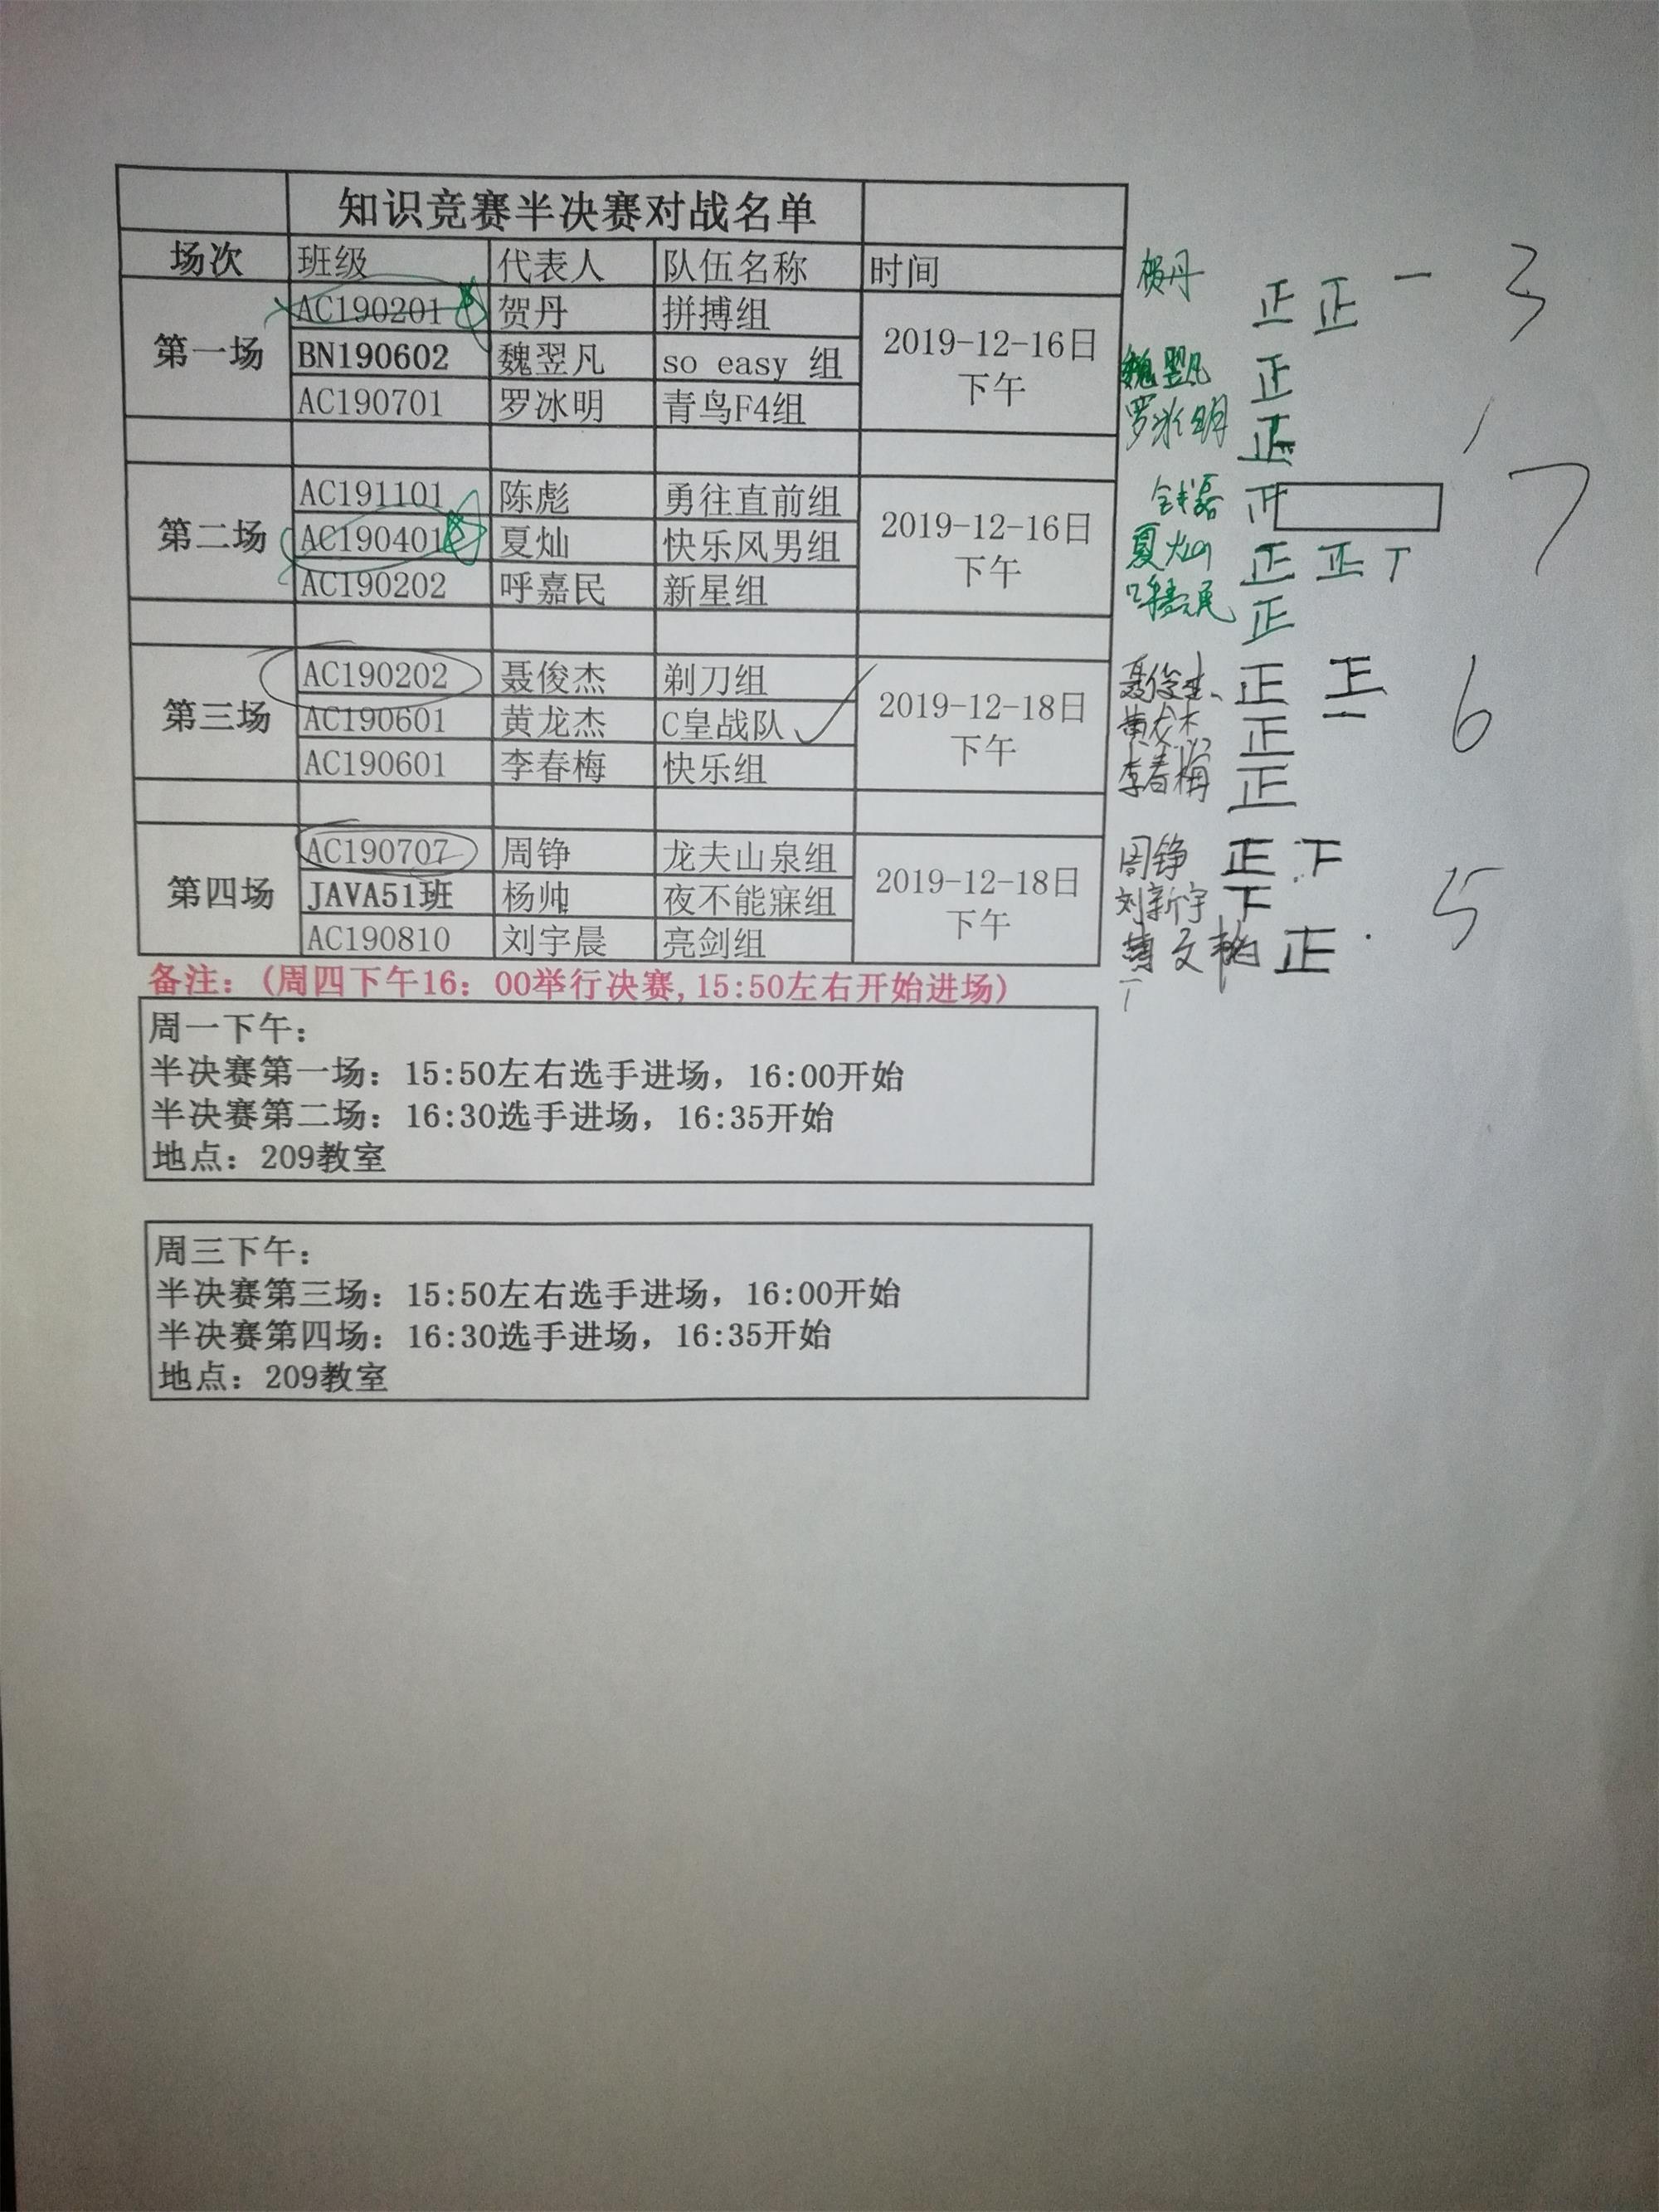 知识竞赛半决赛对战名单
场次 班级 代表人 队伍名称 时间
第一场 AC190201 贺丹 拼搏组 2019-12-16日下午
BN190602 魏翌凡 so easy 组
AC190701 罗冰明 青鸟F4组
第二场 AC191101 陈彪 勇往直前组 2019-12-16日下午
AC190401 夏灿 快乐风男组
AC190202 呼嘉民 新星组
第三场 AC190202 聂俊杰 剃刀组 2019-12-18日下午
AC190601 黄龙杰 C皇战队
AC190601 李春梅 快乐组
第四场 AC190707 周铮 龙夫山泉组 2019-12-18日下午
JAVA51班 杨帅 夜不能寐组
AC190810 刘宇晨 亮剑组
备注：(周四下午16：00举行决赛,15:50左右开始进场)
周一下午：
半决赛第一场：15:50左右选手进场，16:00开始
半决赛第二场：16:30选手进场，16:35开始
地点：209教室
周三下午：
半决赛第三场：15:50左右选手进场，16:00开始
半决赛第四场：16:30选手进场，16:35开始
地点：209教室
贺丹 正 正 一 3
魏翌凡 正
罗冰明 正
夏灿 正 正 丅 7
呼嘉民 正
聂俊杰 正 正 一 6
黄龙杰 正
李春梅 正
周铮 正 下 5
刘新宇 下
正